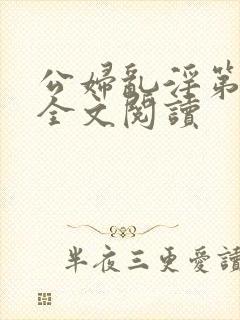 公婦亂淫第
全文閱讀
半夜三更愛讀